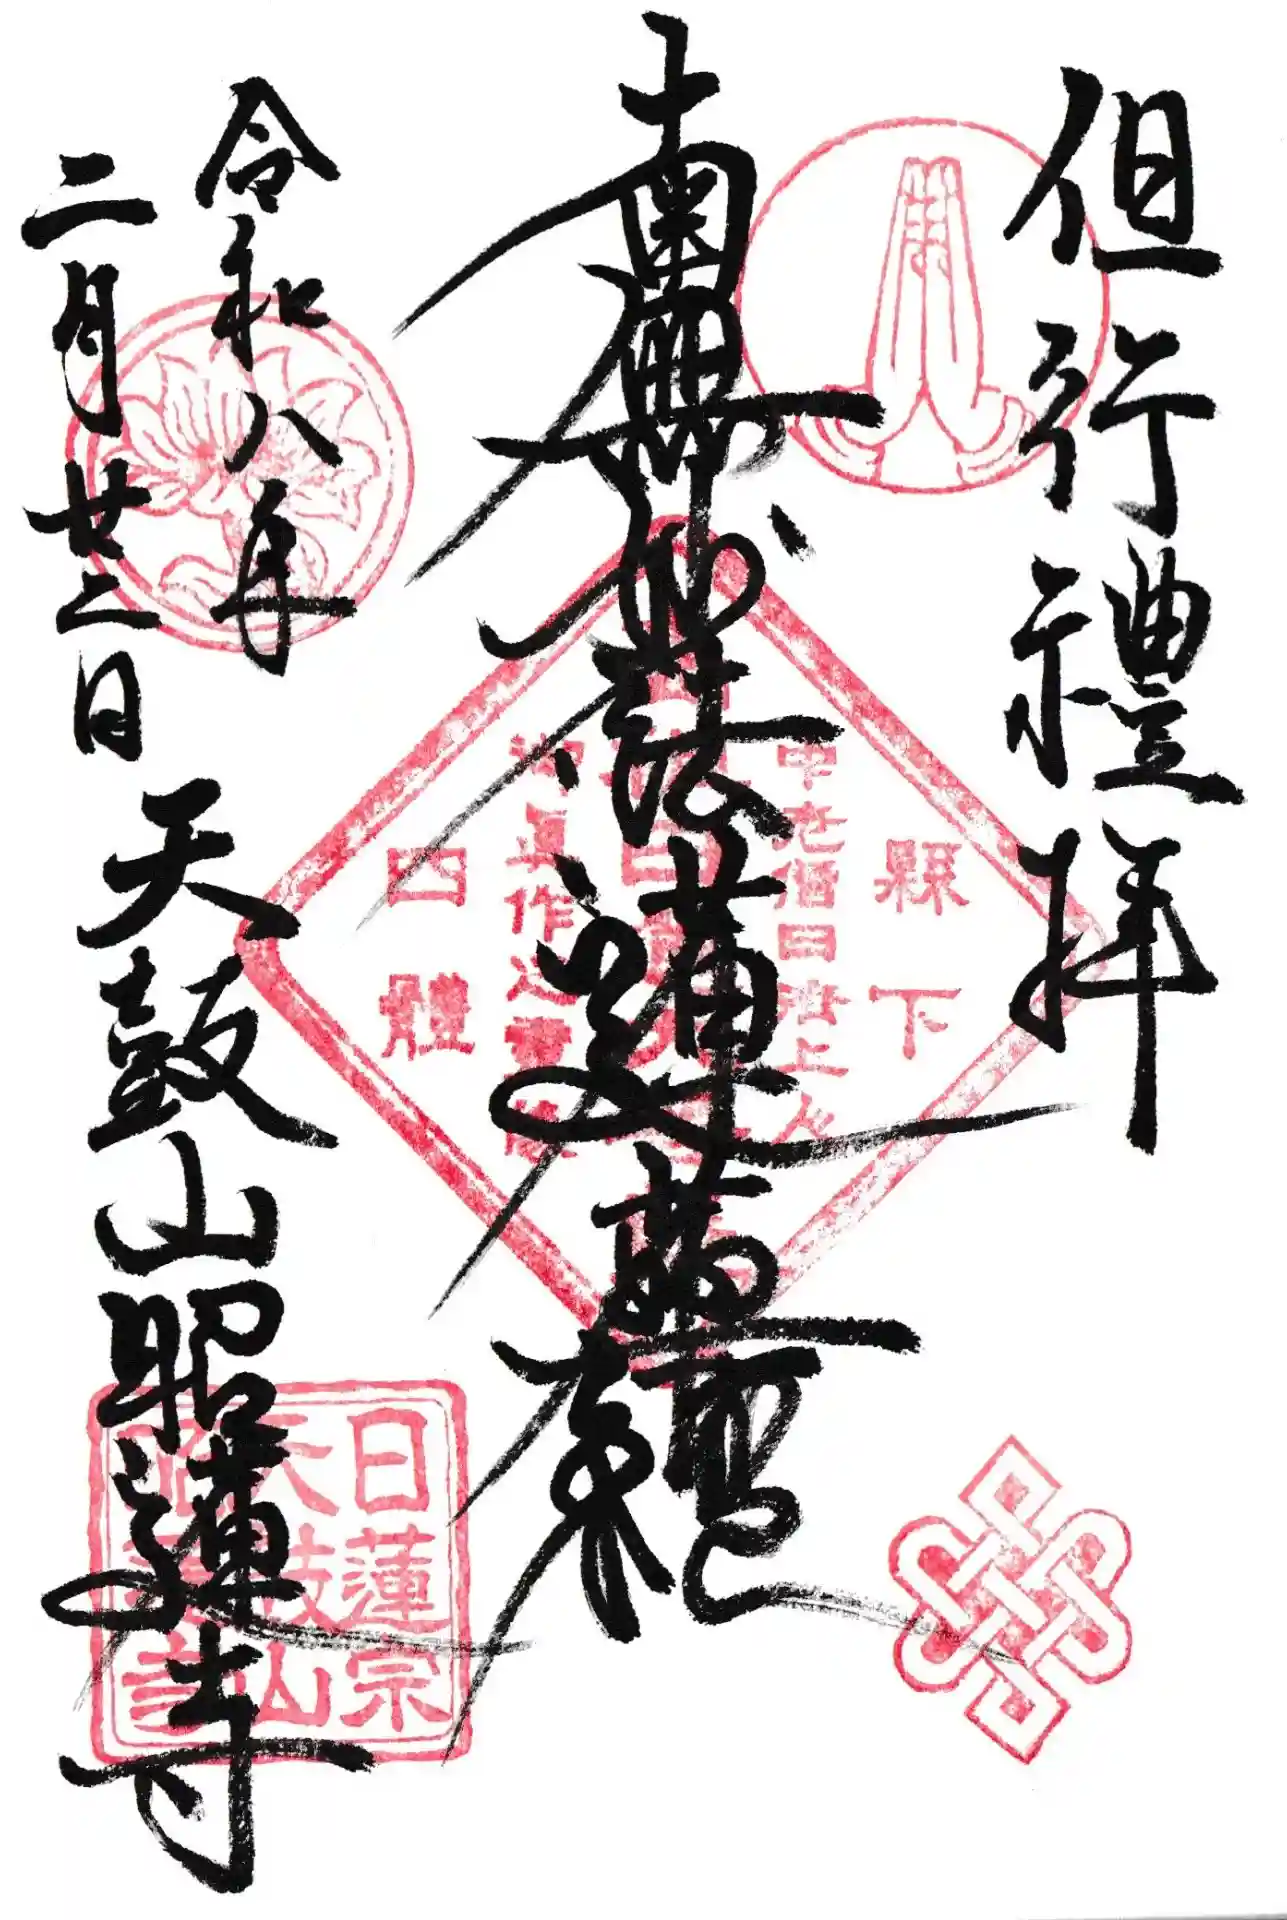 但行禮拜
南無妙法蓮華経
令和八年
二月廿二日
天鼓山昭蓮寺
縣下
四體
日蓮宗
天鼓山